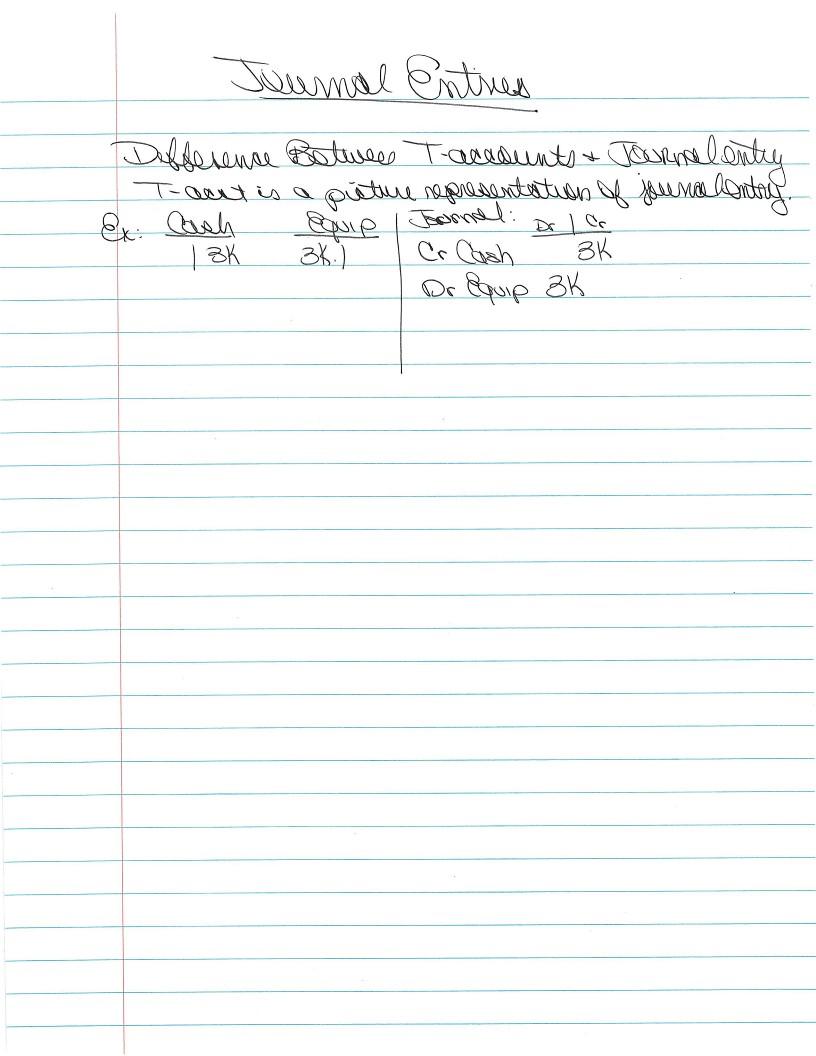 Journal Entries
Difference Between T-accounts + Journal entry
T-acct is a picture representation of journal entry.
Ex: Cash Equip Journal: Dr | Cr
| 3K 3K | Cr Cash 3K
Dr Equip 3K